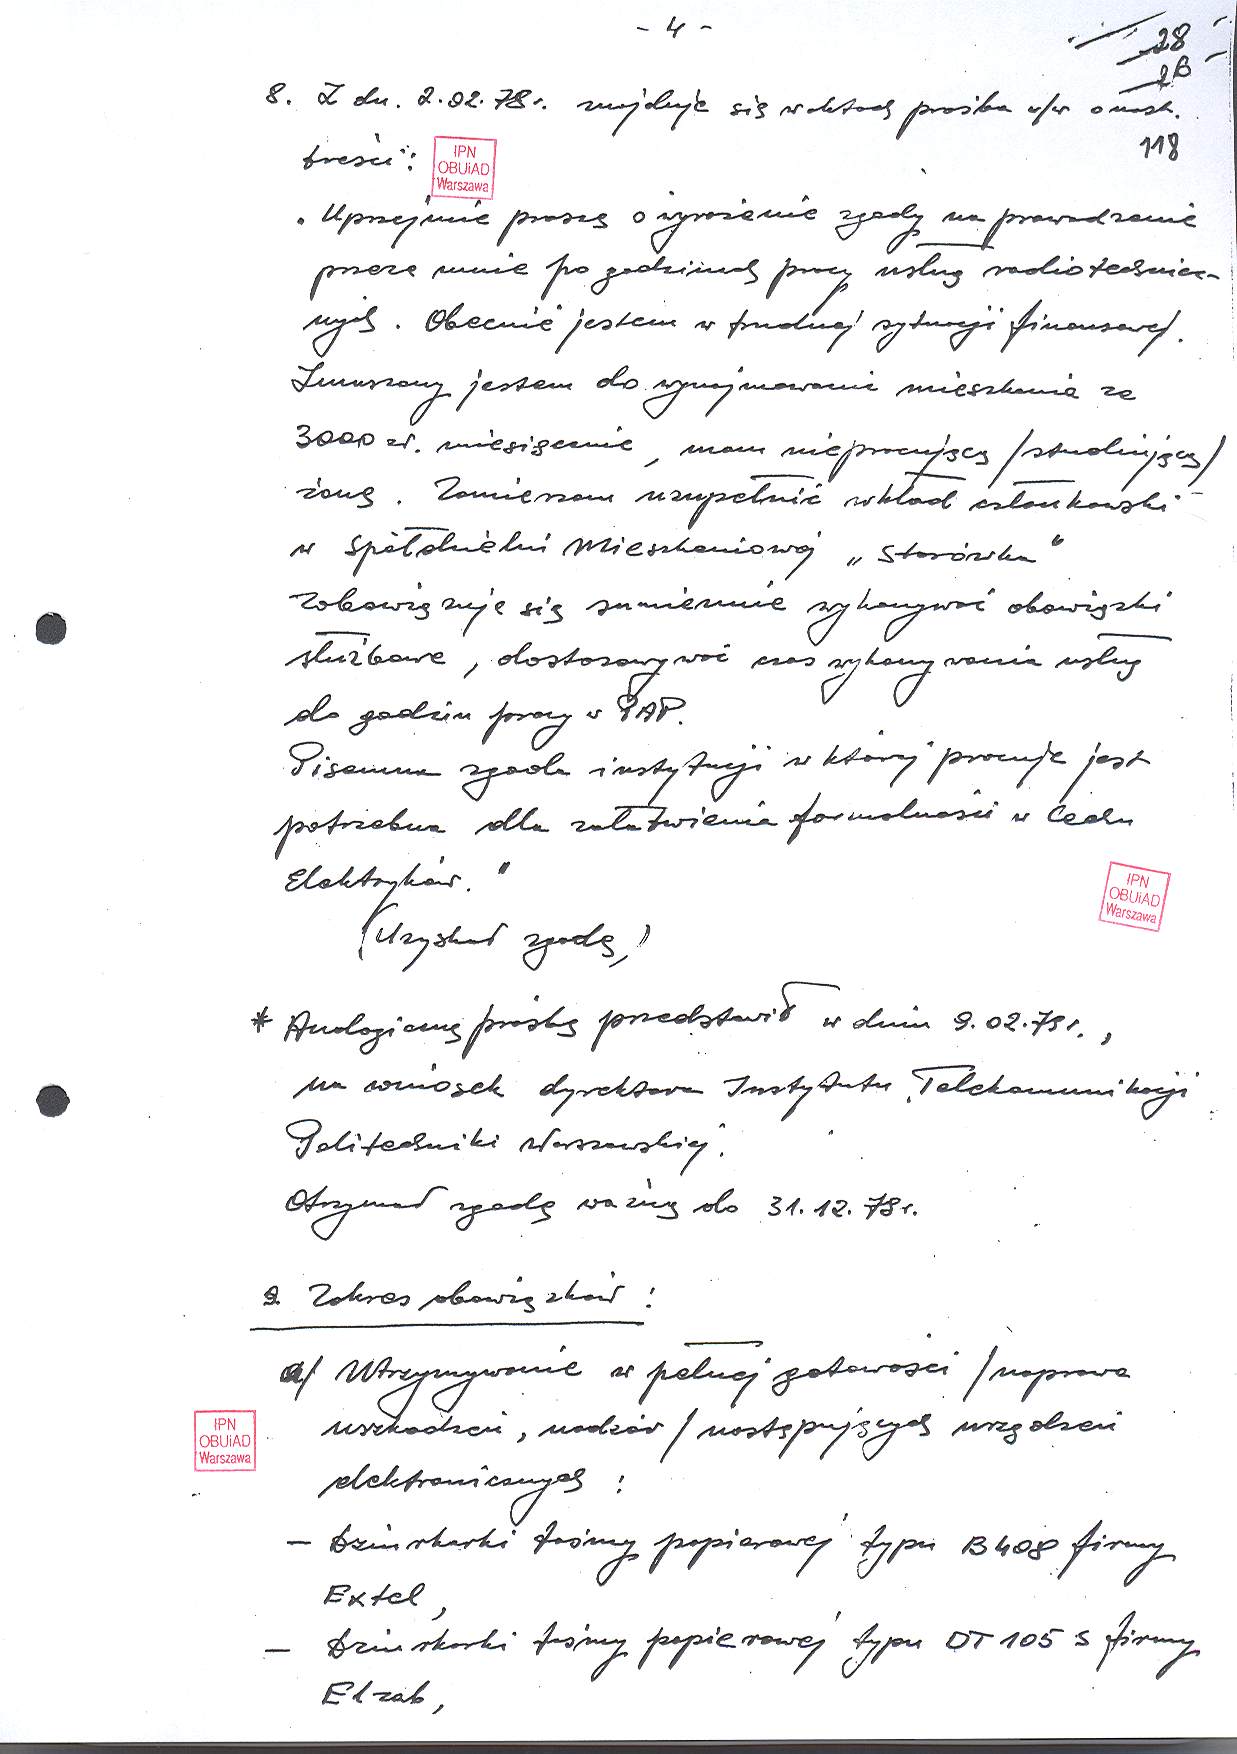 - 4 -
28
118
8. Z dn. 2.02.78r. znajduje się w aktach prośba w/w o nast.
treści:
IPN
OBUiAD
Warszawa
"Uprzejmie proszę o wyrażenie zgody na prowadzenie
przeze mnie po godzinach pracy usług radiotechnicz-
nych. Obecnie jestem w trudnej sytuacji finansowej.
Zmuszony jestem do wynajmowania mieszkania za
3000 zł. miesięcznie, mam niepracującą /studiującą/
żonę. Zamierzam uzupełnić wkład członkowski
w Spółdzielni Mieszkaniowej „Starówka"
Zobowiązuję się sumiennie wykonywać obowiązki
służbowe, dostosowywać czas wykonywania usług
do godzin pracy w PAP.
Pisemna zgoda instytucji w której pracuję jest
potrzebna dla załatwienia formalności w Cechu
Elektryków."
IPN
OBUiAD
Warszawa
(Uzyskał zgodę)
* Analogiczną prośbę przedstawił w dniu 9.02.79r.,
na wniosek dyrektora Instytutu Telekomunikacji
Politechniki Warszawskiej.
Otrzymał zgodę ważną do 31.12.79r.
9. Zakres obowiązków:
a/ Utrzymywanie w pełnej gotowości /naprawa
uszkodzeń, nadzór/ następujących urządzeń
IPN
OBUiAD
Warszawa
elektronicznych:
- dziurkarki taśmy papierowej typu B408 firmy
Extel,
- dziurkarki taśmy papierowej typu DT 105 S firmy
Elzab,